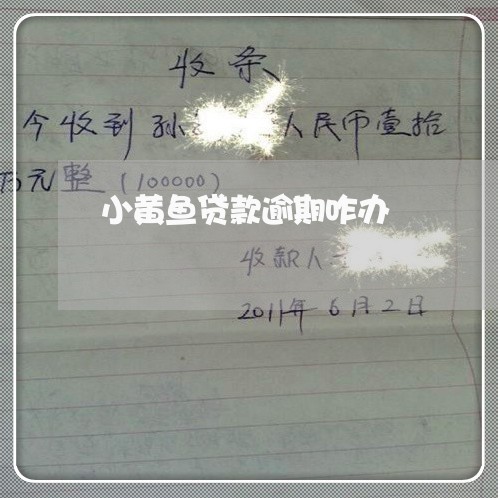 收条
今收到孙 人民币壹拾
万元整（100000）
小黄鱼贷款逾期咋办
收款人
2011年6月2日